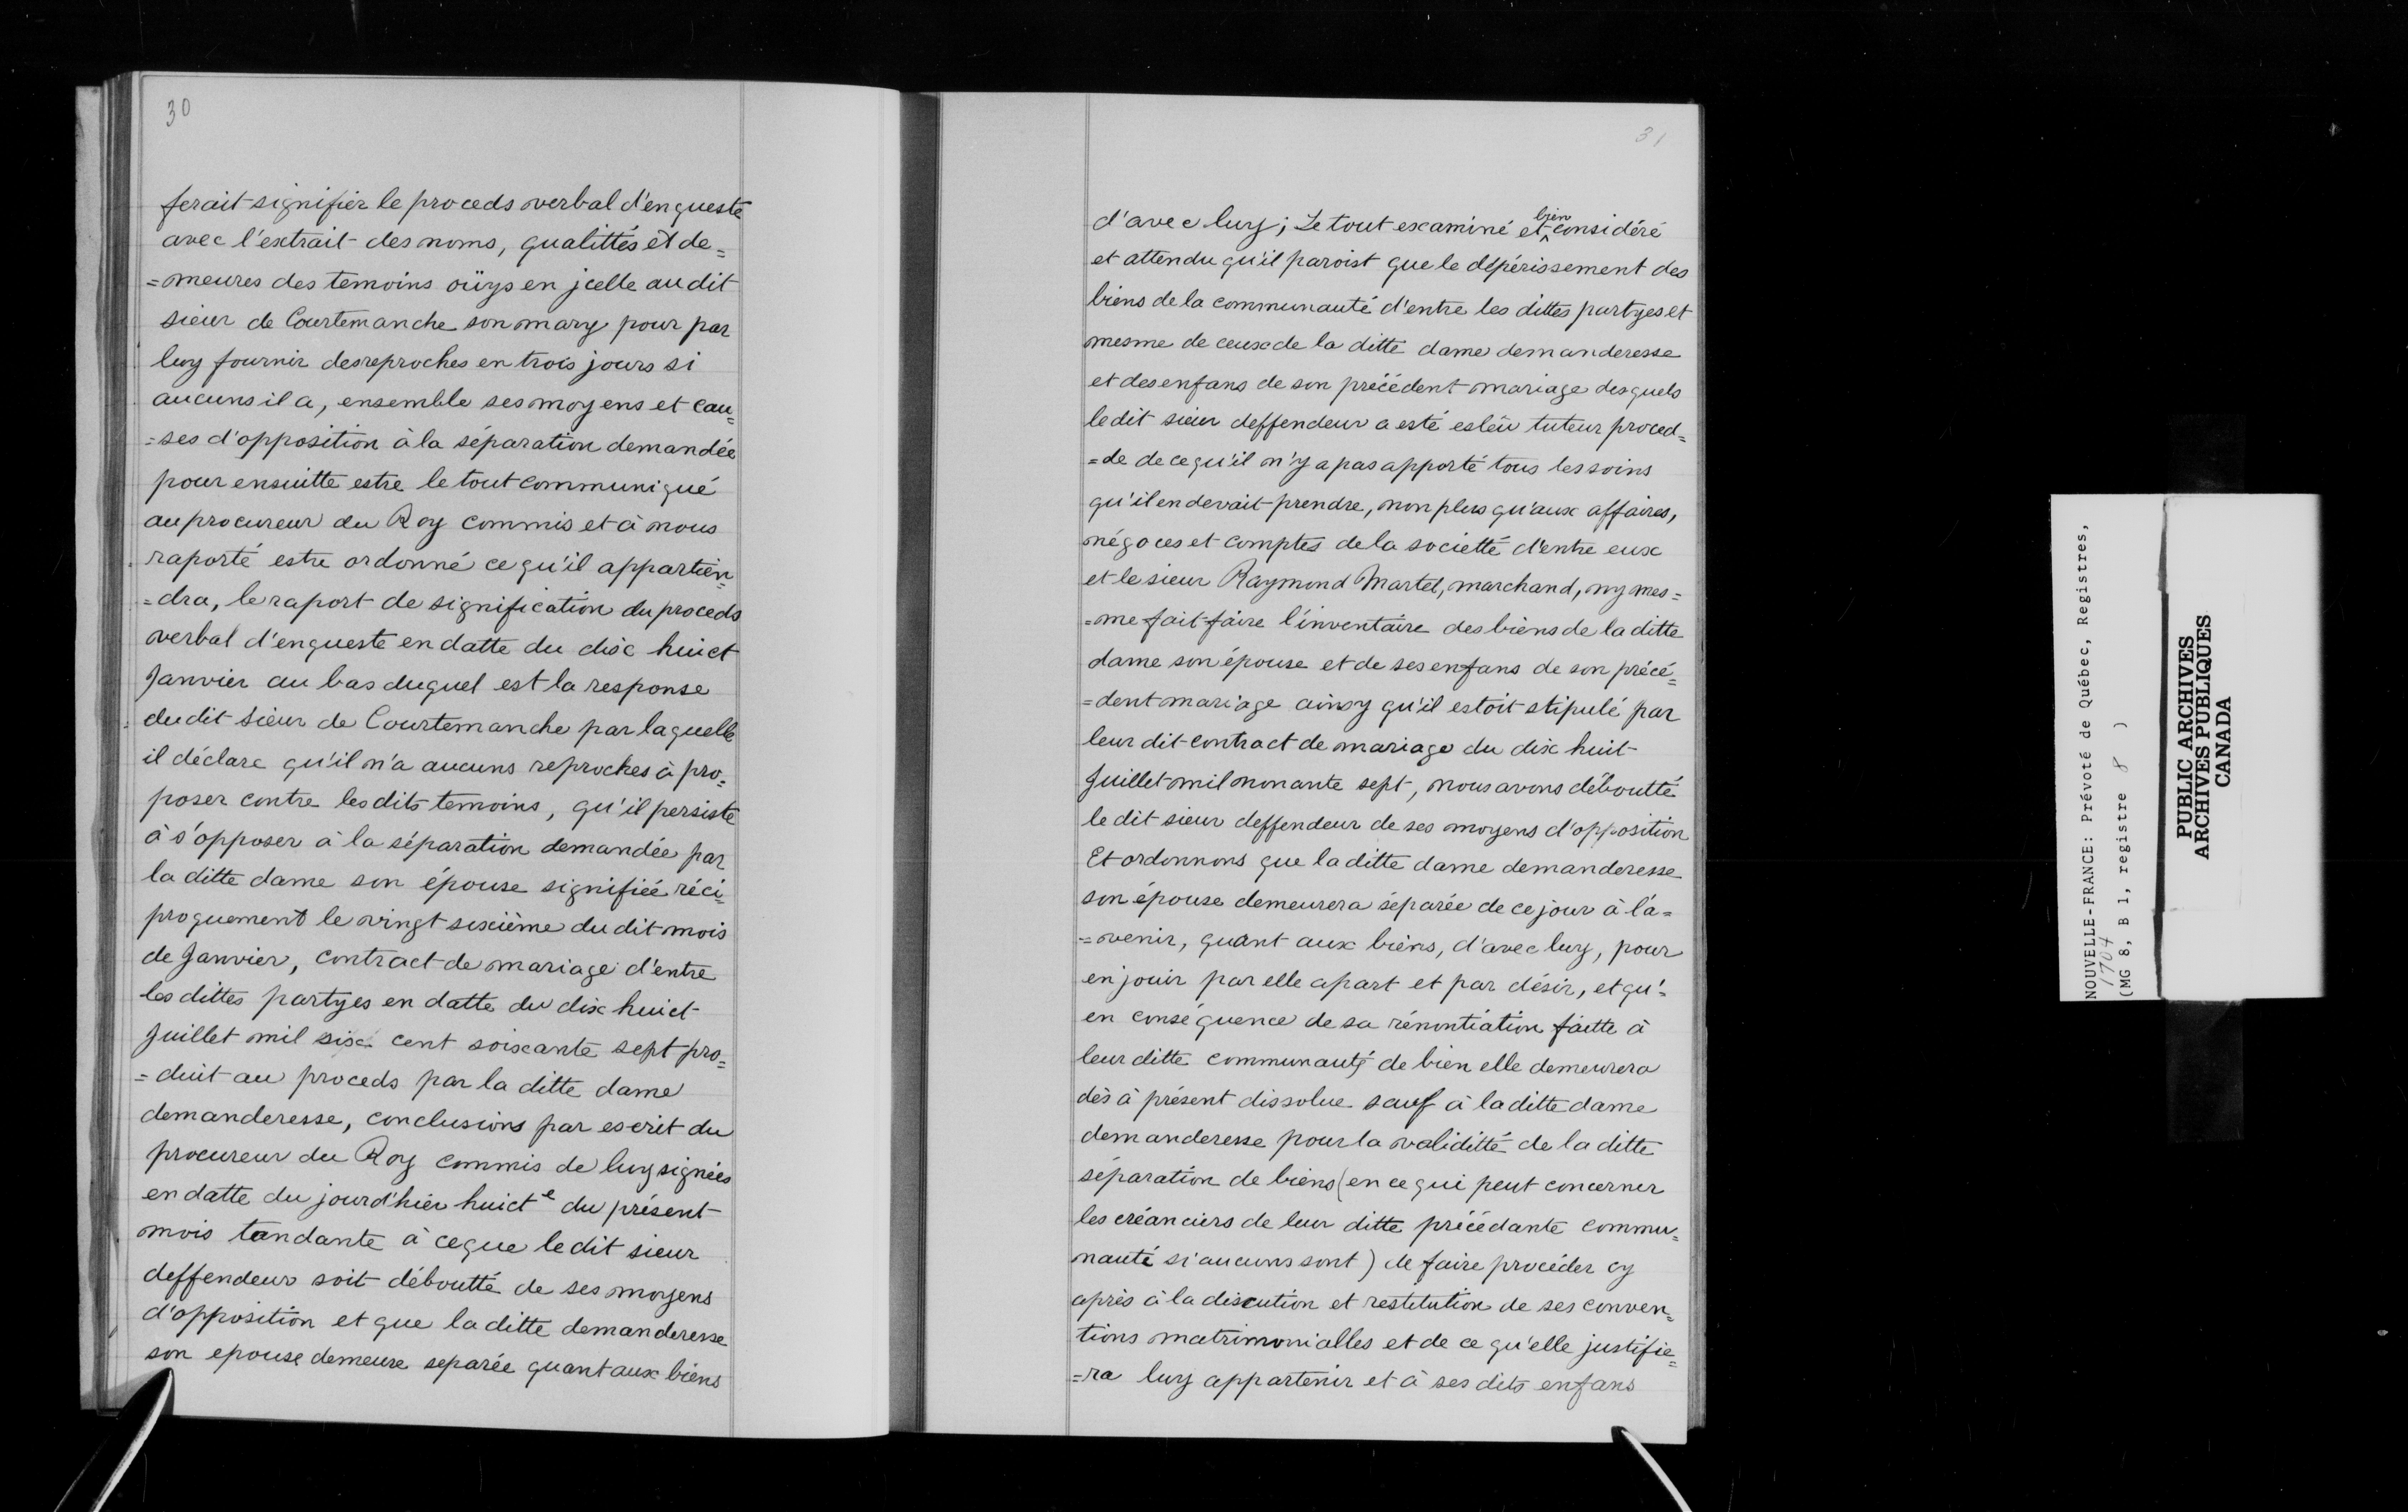 30
ferait signifier le proceds verbal d'enqueste
avec l'extrait des noms, qualittés et de=
=meures des temoins oüys en jcelle au dit
sieur de Courtemanche son mary pour par
luy fournir des reproches en trois jours si
aucuns il a, ensemble ses moyens et cau=
=ses d'opposition à la séparation demandée
pour ensuitte estre le tout communiqué
au procureur du Roy commis et à nous
raporté estre ordonné ce qu'il appartien=
=dra, le raport de signification du proceds
verbal d'enqueste en datte du dix huict
Janvier au bas duquel est la response
du dit sieur de Courtemanche par laquelle
il déclare qu'il n'a aucuns reproches à pro=
poser contre les dits temoins, qu'il persiste
à s'opposer à la séparation demandée par
la ditte dame son épouse signifiée réci=
proquement le vingt sixième du dit mois
de Janvier, contract de mariage d'entre
les dittes partyes en datte du dix huict
Juillet mil six cent soixante sept pro=
=duit au proceds par la ditte dame
demanderesse, conclusions par escrit du
procureur du Roy commis de luy signées
en datte du jourd'hier huict e du présent
mois tandante à ce que le dit sieur
deffendeur soit déboutté de ses moyens
d'opposition et que la ditte demanderesse
son epouse demeure separée quant aux biens
31
d'avec luy; Le tout examiné et bien considéré
et attendu qu'il paroist que le dépérissement des
biens de la communauté d'entre les dittes partyes et
mesme de ceux de la ditte dame demanderesse
et des enfans de son précédent mariage desquels
le dit sieur deffendeur a esté esleü tuteur proced=
=de de ce qu'il n'y a pas apporté tous les soins
qu'il en devait prendre, non plus qu'aux affaires,
négoces et comptes de la sociétté d'entre eux
et le sieur Raymond Martel, marchand, ny mes=
=me fait faire l'inventaire des biens de la ditte
dame son épouse et de ses enfans de son précé=
=dent mariage ainsy qu'il estoit stipulé par
leur dit contract de mariage du dix huit
Juillet mil nonante sept, nous avons déboutté
le dit sieur deffendeur de ses moyens d'opposition
Et ordonnons que la ditte dame demanderesse
son épouse demeurera séparée de ce jour à l'a=
=venir, quant aux biens, d'avec luy, pour
en jouir par elle apart et par désir, et qu'=
en conséquence de sa rénontiation faitte à
leur ditte communauté de bien elle demeurera
dès à présent dissolue sauf à la ditte dame
demanderesse pour la validitté de la ditte
séparation de biens (en ce qui peut concerner
les créanciers de leur ditte précédante commu=
nauté si aucuns sont) de faire procéder cy
après à la discution et restitution de ses conven=
tions matrimonialles et de ce qu'elle justifie=
=ra luy appartenir et à ses dits enfans
NOUVELLE-FRANCE: Prévoté de Québec, Registres,
1704
(MG 8, B 1, registre 8 )
PUBLIC ARCHIVES
ARCHIVES PUBLIQUES
CANADA